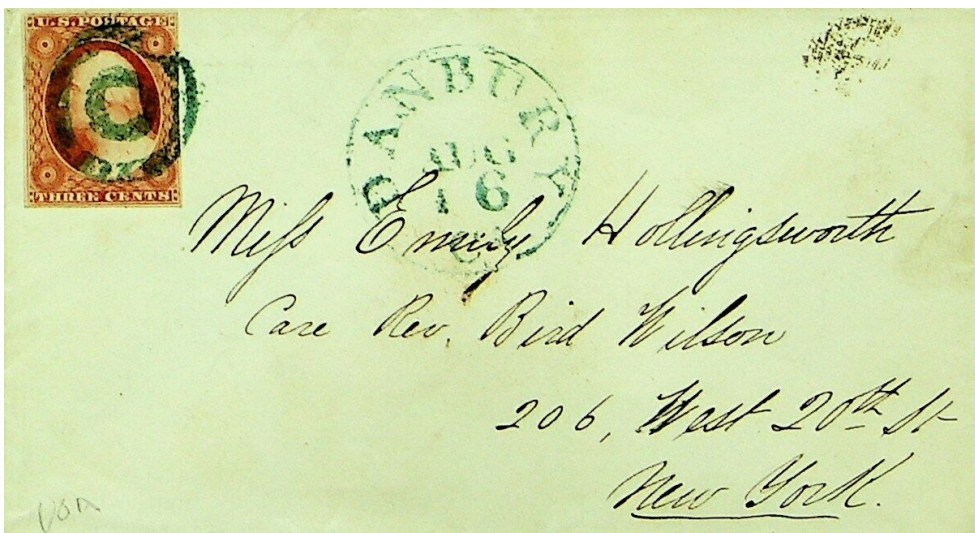 U.S. POSTAGE
THREE CENTS
DANBURY
AUG
16
Miss Emily Hollingsworth
Care Rev. Bird Wilson
206, West 20th St
New York.
USA